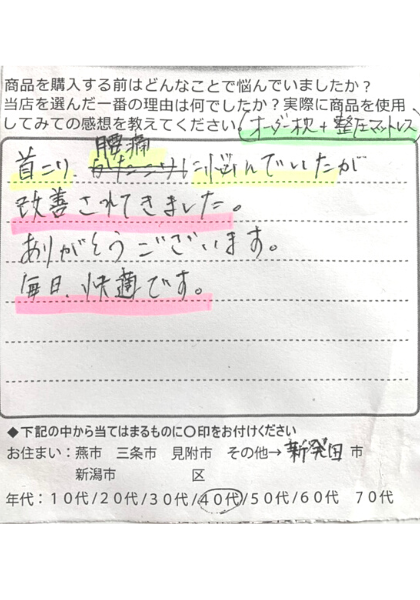 商品を購入する前はどんなことで悩んでいましたか?
当店を選んだ一番の理由は何でしたか?実際に商品を使用
してみての感想を教えてください(オーダー枕+整圧マットレス
腰痛
首こり、に悩んでいたが
改善されてきました。
ありがとうございます。
毎日、快適です。
◆下記の中から当てはまるものに〇印をお付けください
お住まい:燕市 三条市 見附市 その他→新発田市
新潟市 区
年代:10代/20代/30代/40代/50代/60代 70代